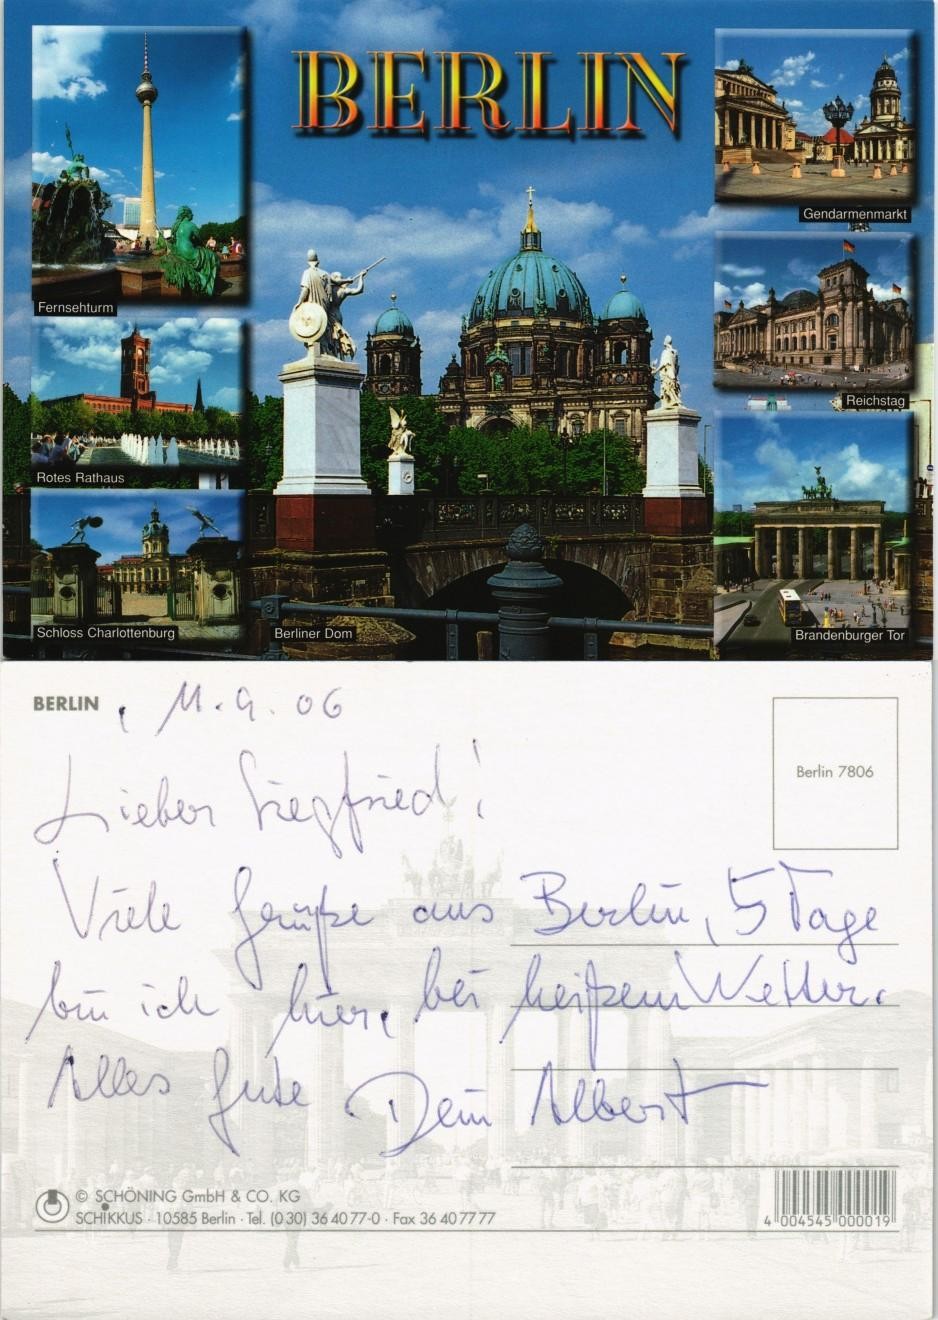 BERLIN
Fernsehturm
Rotes Rathaus
Schloss Charlottenburg
Berliner Dom
Gendarmenmarkt
Reichstag
Brandenburger Tor
BERLIN, 11.9.06
Berlin 7806
Lieber Siegfried!
Viele Grüße aus Berlin, 5 Tage
bin ich hier, bei heißem Wetter.
Alles Gute Dein Albert
© SCHÖNING GmbH & CO. KG
SCHIKKUS · 10585 Berlin · Tel. (030) 36 40 77-0 · Fax 36 40 77 77
4 004545 000019